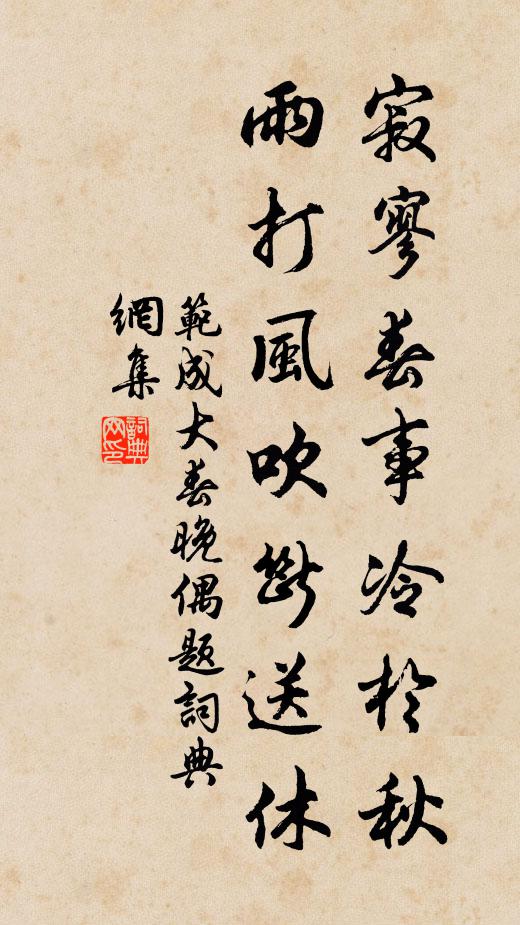 寂寥春事冷於秋
雨打風吹斷送休
範成大春晚偶題詞典
網集
詞典
网印